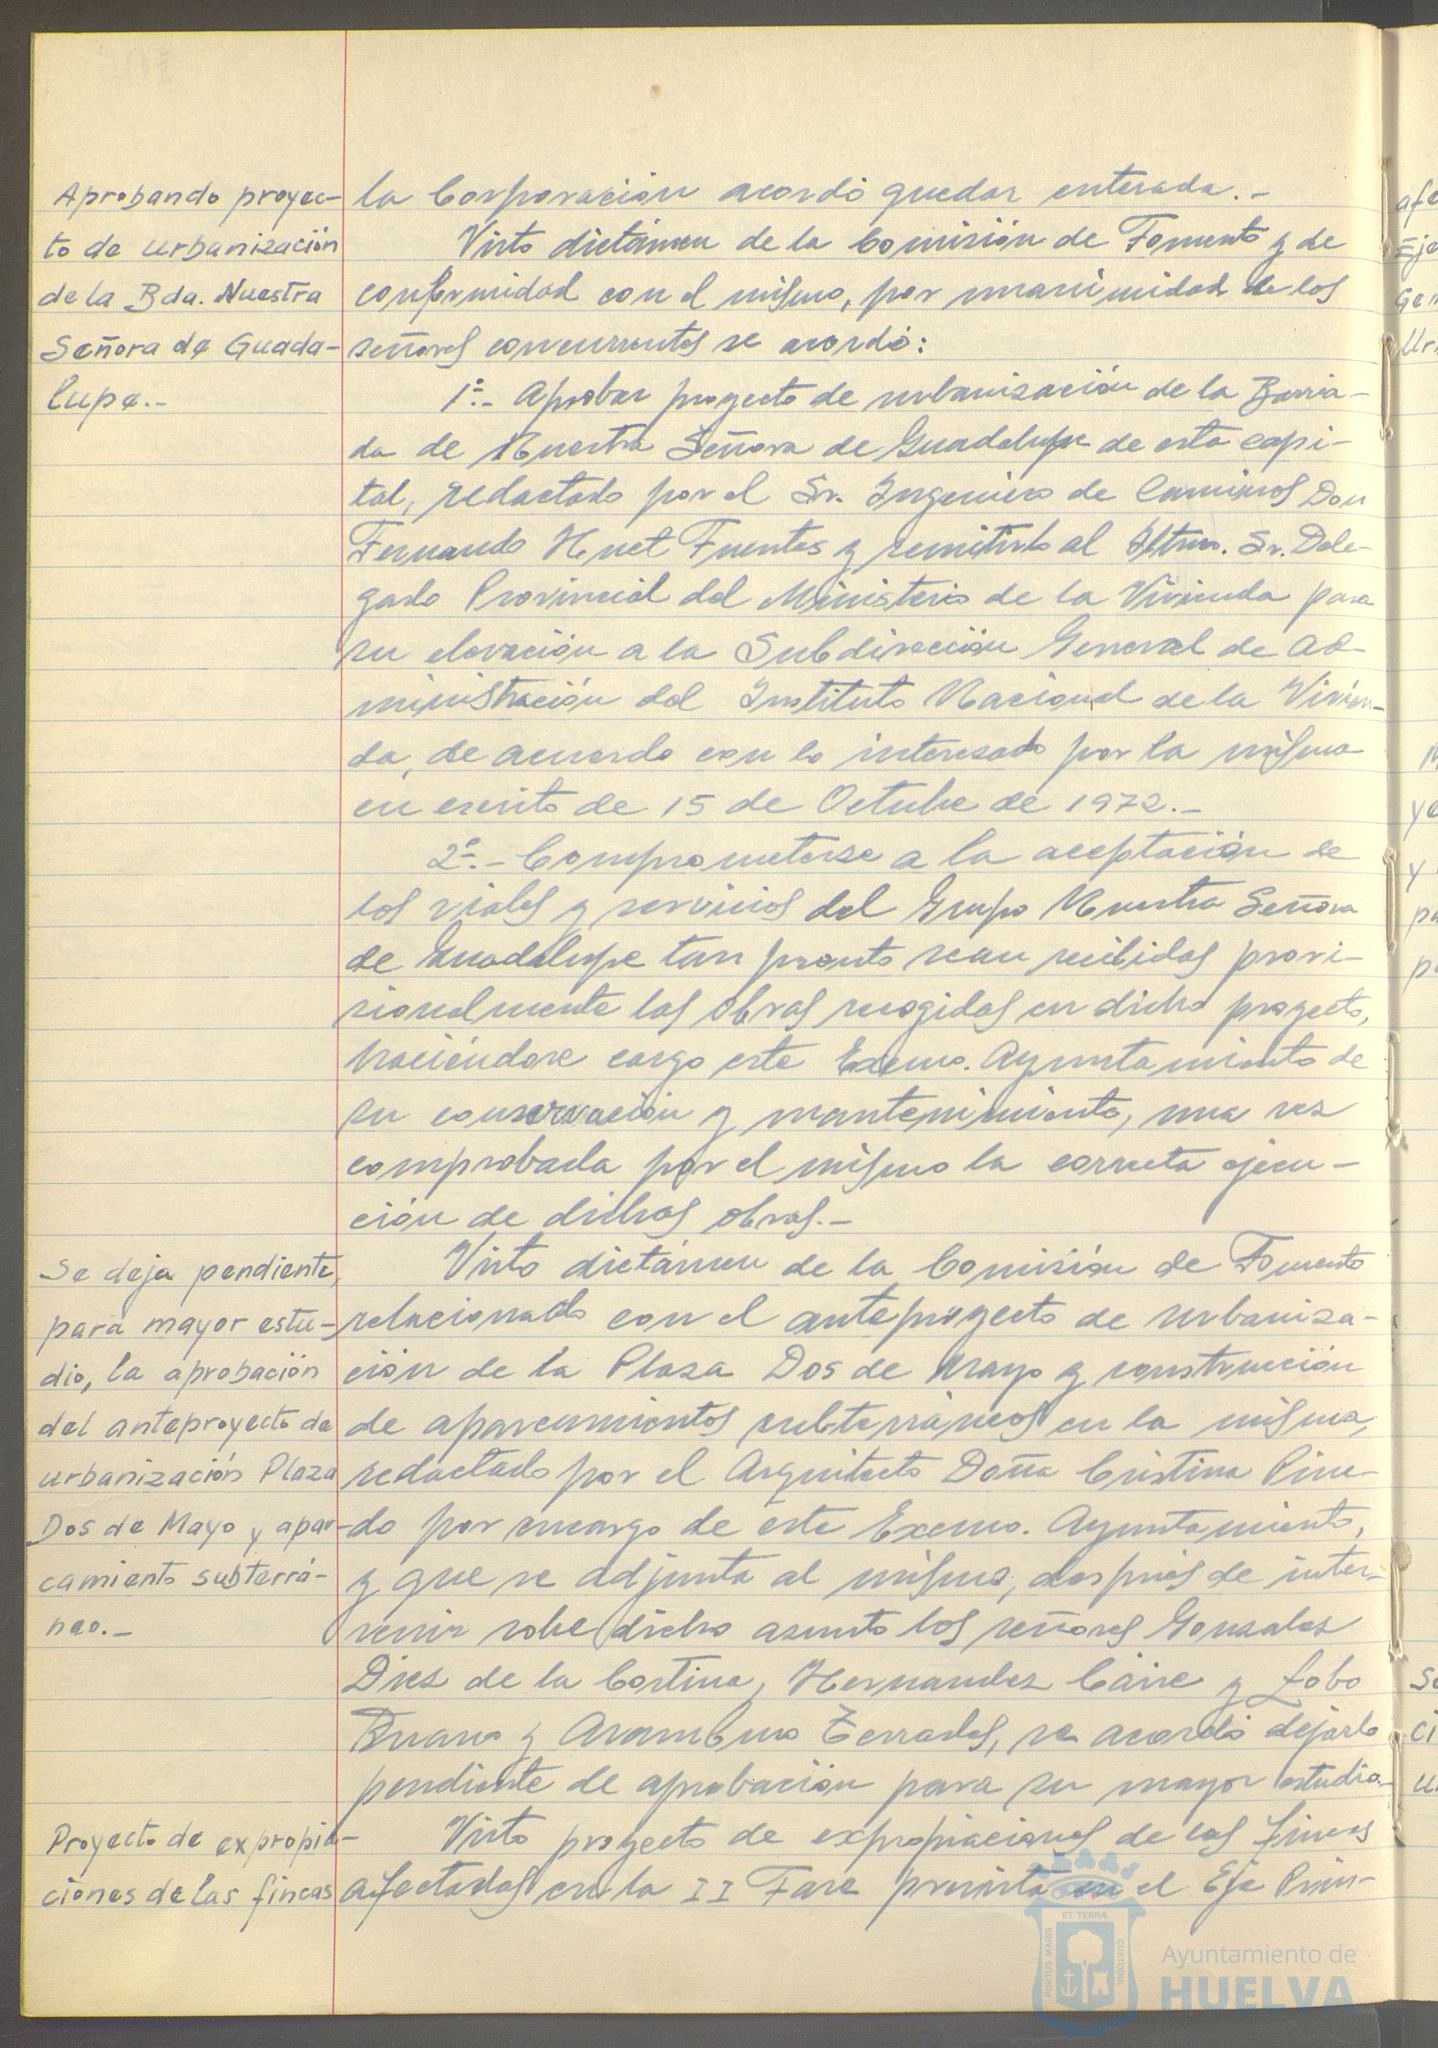 Aprobando proyec-
to de urbanización
de la Bda. Nuestra
Señora de Guada-
lupe.-
la Corporación acordó quedar enterada.-
Visto dictámen de la Comisión de Fomento y de
conformidad con el mismo, por unanimidad de los
señores concurrentes se acordó:
1º.- Aprobar proyecto de urbanización de la Barria-
da de Nuestra Señora de Guadalupe de esta capi-
tal, redactado por el Sr. Ingeniero de Caminos Don
Fernando Huet Fuentes y remitirlo al Iltmo. Sr. Dele-
gado Provincial del Ministerio de la Vivienda para
su elevación a la Subdirección General de Ad-
ministración del Instituto Nacional de la Vivien-
da, de acuerdo con lo interesado por la misma
en escrito de 15 de Octubre de 1972.-
2º.- Comprometerse a la aceptación de
los viales y servicios del Grupo Nuestra Señora
de Guadalupe tan pronto sean recibidas provi-
sionalmente las obras recogidas en dicho proyecto,
haciéndose cargo este Excmo. Ayuntamiento de
su conservación y mantenimiento, una vez
comprobada por el mismo la correcta ejecu-
ción de dichas obras.-
Se deja pendiente,
para mayor estu-
dio, la aprobación
del anteproyecto de
urbanización Plaza
Dos de Mayo y apar-
camiento subterrá-
neo.-
Visto dictámen de la Comisión de Fomento
relacionado con el anteproyecto de urbaniza-
ción de la Plaza Dos de Mayo y construcción
de aparcamientos subterráneos en la misma,
redactado por el Arquitecto Doña Cristina Pine-
do por encargo de este Excmo. Ayuntamiento,
y que se adjunta al mismo, después de inter-
venir sobre dicho asunto los señores Gonzalez
Diez de la Cortina, Hernandez Caire y Lobo
Ruano y Aramburo Terrades, se acordó dejarlo
pendiente de aprobación para su mayor estudio.-
Proyecto de expropia-
ciones de las fincas
Visto proyecto de expropiaciones de las fincas
afectadas en la II Fase prevista en el Eje Prin-
PORTUS MARIS ET TERRÆ CUSTODIA
Ayuntamiento de
HUELVA